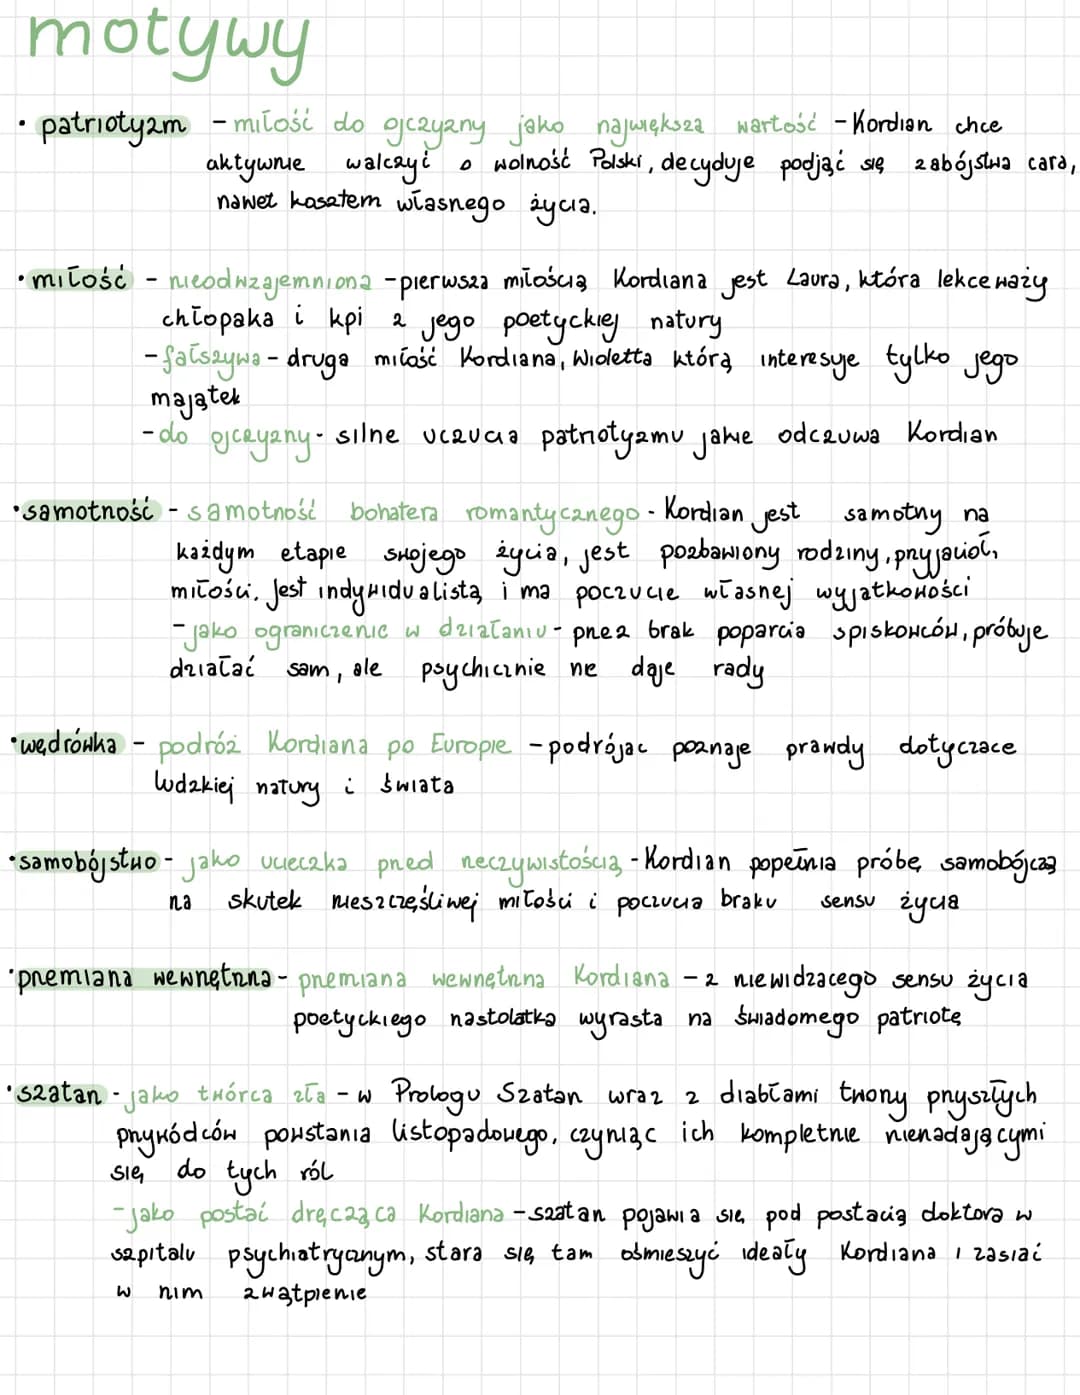 motywy
• patriotyzm - miłość do ojczyzny jako największa wartość - Kordian chce
aktywnie walczyć o wolność Polski, decyduje podjąć się zabójstwa cara,
nawet kosztem własnego życia.
• miłość - nieodwzajemniona - pierwszą miłością Kordiana jest Laura, która lekceważy
chłopaka i kpi z jego poetyckiej natury
- fałszywa - druga miłość Kordiana, Wioletta którą interesuje tylko jego
majątek
- do ojczyzny - silne uczucia patriotyzmu jakie odczuwa Kordian
• samotność - samotność bohatera romantycznego - Kordian jest samotny na
każdym etapie swojego życia, jest pozbawiony rodziny, przyjaciół,
miłości. Jest indywidualistą i ma poczucie własnej wyjątkowości
- jako ograniczenie w działaniu - przez brak poparcia spiskowców, próbuje
działać sam, ale psychicznie nie daje rady
• wędrówka - podróż Kordiana po Europie - podrójac poznaje prawdy dotyczace
ludzkiej natury i świata
• samobójstwo - jako ucieczka przed rzeczywistością - Kordian popełnia próbę samobójczą
na skutek nieszczęśliwej miłości i poczucia braku sensu życia
• przemiana wewnętrzna - przemiana wewnętrzna Kordiana - z niewidzacego sensu życia
poetyckiego nastolatka wyrasta na świadomego patriotę
• szatan - jako twórca zła - w Prologu Szatan wraz z diabłami tworzy przyszłych
przywódców powstania listopadowego, czyniąc ich kompletnie nienadającymi
się do tych ról
- jako postać dręcząca Kordiana - szatan pojawia się pod postacią doktora w
szpitalu psychiatrycznym, stara się tam ośmieszyć ideały Kordiana i zasiać
w nim zwątpienie